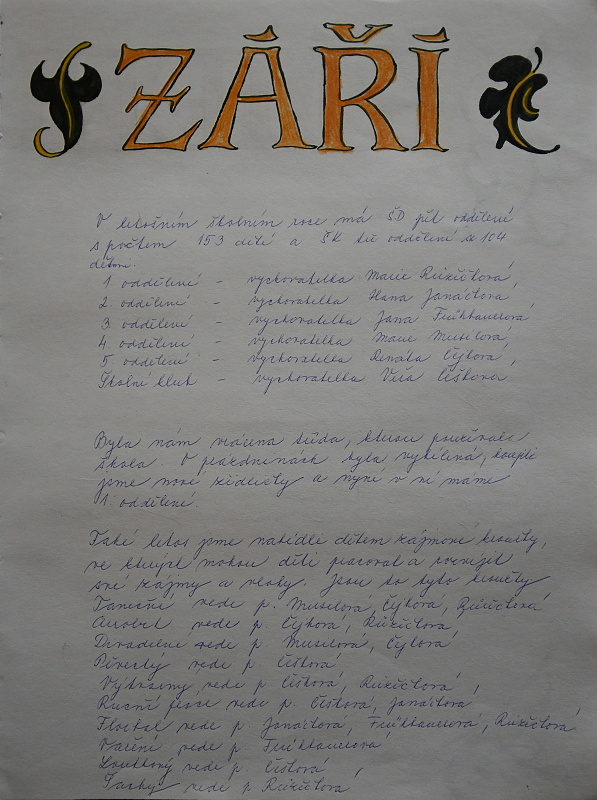 ZÁŘÍ
V letošním školním roce má ŠD pět oddělení
s počtem 153 dětí a ŠK tři oddělení se 104
dětmi.
1. oddělení - vychovatelka Marie Růžičková,
2. oddělení - vychovatelka Hana Janáčková,
3. oddělení - vychovatelka Jana Frühbauerová,
4. oddělení - vychovatelka Marie Musilová,
5. oddělení - vychovatelka Renáta Čejková,
Školní klub - vychovatelka Věra Číšková
Byla nám vrácena třída, kterou používala
škola. O prázdninách byla vybílená, koupili
jsme nové židličky a nyní v ní máme
1. oddělení.
Také letos jsme nabídli dětem zájmové kroužky,
ve kterých mohou děti pracovat a rozvíjet
své zájmy a vlohy. Jsou to tyto kroužky
Taneční vede p. Musilová, Čejková, Růžičková
Aerobik vede p. Čejková, Růžičková
Divadelní vede p. Musilová, Čejková
Pěvecký vede p. Číšková
Výtvarný vede p. Číšková, Růžičková,
Ruční práce vede p. Číšková, Janáčková
Florbal vede p. Janáčková, Frühbauerová, Růžičková
Vaření vede p. Frühbauerová
Loutkový vede p. Číšková,
Šachy vede p. Růžičková